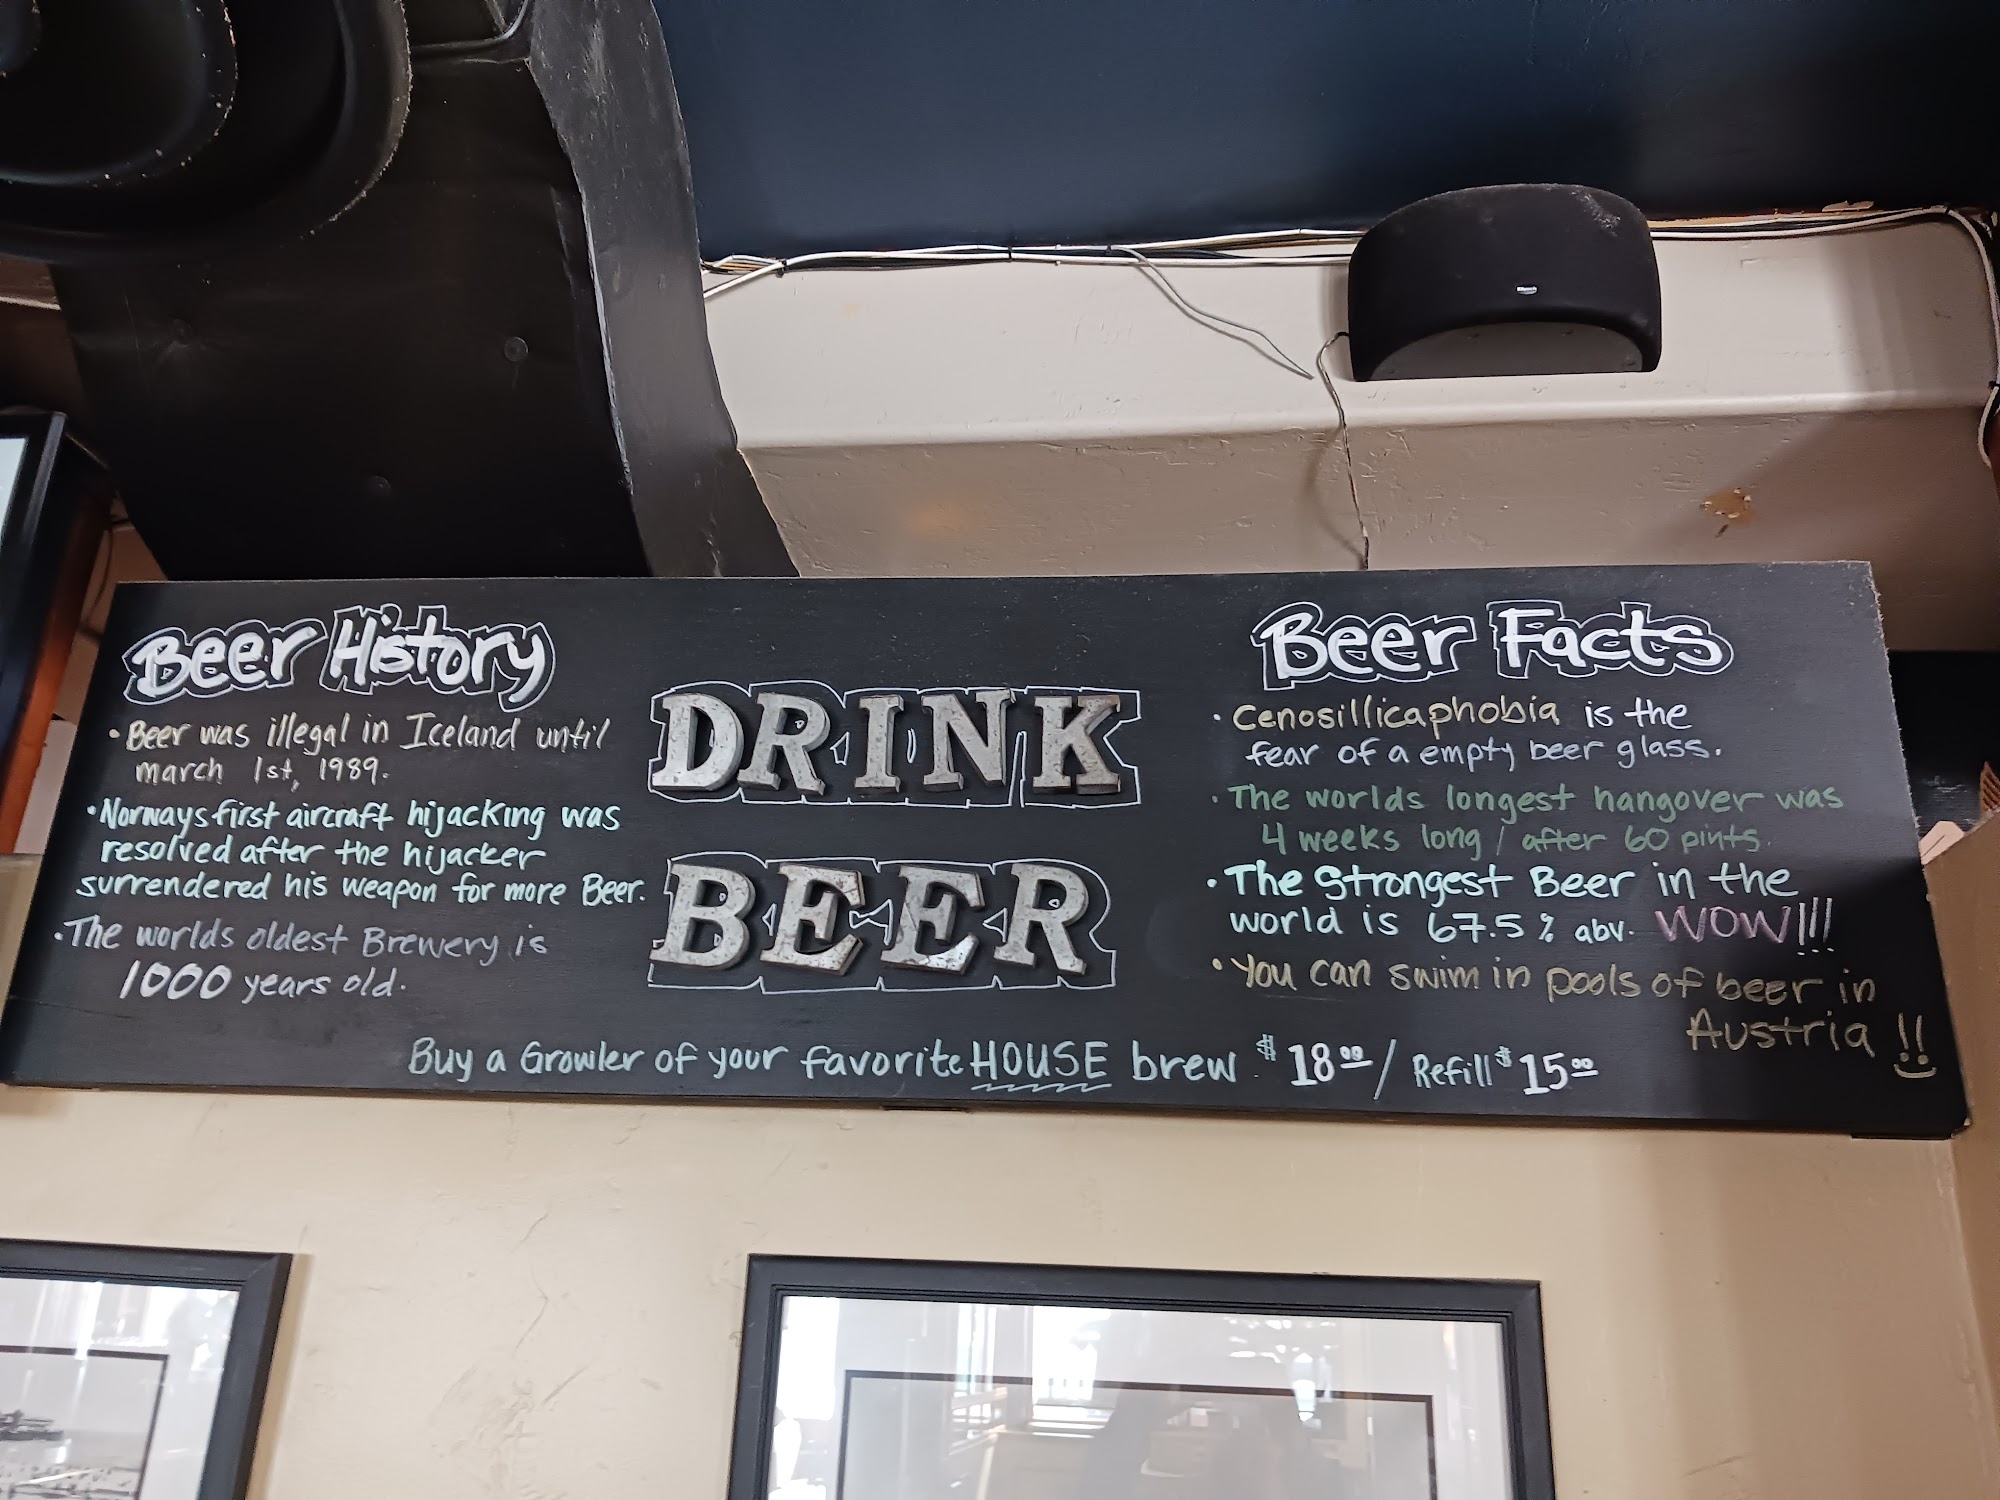 Beer History
• Beer was illegal in Iceland until
march 1st, 1989.
• Norways first aircraft hijacking was
resolved after the hijacker
surrendered his weapon for more Beer.
• The worlds oldest Brewery is
1000 years old.
DRINK
BEER
Beer Facts
• Cenosillicaphobia is the
fear of a empty beer glass.
• The worlds longest hangover was
4 weeks long / after 60 pints.
• The Strongest Beer in the
world is 67.5 % abv. WOW!!!
• You can swim in pools of beer in
Austria !!
Buy a Growler of your favorite HOUSE brew. $18.00 / Refill $15.00
Klipsch